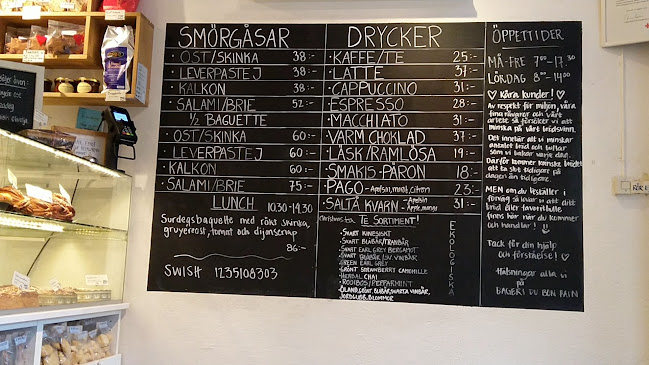 SMÖRGÅSAR
· OST/SKINKA 38:-
· LEVERPASTEJ 38:-
· KALKON 38:-
· SALAMI/BRIE 52:-
½ BAGUETTE
· OST/SKINKA 60:-
· LEVERPASTEJ 60:-
KALKON 60:-
· SALAMI/BRIE 75:-
LUNCH 10.30-14.30
Surdegsbaguette med rökt skinka,
gruyèreost, tomat och dijonsenap
86:-
SWISH 1235108303
DRYCKER
· KAFFE/TE 25:-
· LATTE 37:-
· CAPPUCCINO 31:-
· ESPRESSO 28:-
· MACCHIATO 31:-
· VARM CHOKLAD 37:-
· LÄSK/RAMLÖSA 19:-
· SMAKIS-PÄRON 18:-
· PAGO - Apelsin, 23:-
· SALTÅ KVARN - Apelsin 31:-
Äpple, mango
TE SORTIMENT!
· SVART KINESISKT
· SVART BLÅBÄR/TRANBÄR
· SVART EARL GREY BERGAMOT
· SVART BLÅBÄR
· GREEN EARL GREY
· GRÖNT STRAWBERRY CAMOMILLE
· HERBAL CHAI
· ROOIBOS/PEPPARMINT
· ÖLAND, GRÖNT, BLÅBÄR, SVARTA VINBÄR,
JORDGUBB, BLOMMOR
EKOLOGISKA
ÖPPETTIDER
MÅ-FRE 7⁰⁰-17.30
LÖRDAG 8⁰⁰-14⁰⁰
♡ Kära kunder! ♡
Av respekt för miljön, våra
fina råvaror och vårt
arbete så försöker vi att
minska på vårt brödsvinn.
Det innebär att vi minskar
antalet bröd och bullar
som vi bakar varje dag.
Därför kommer kanske brödet
att ta slut tidigare på
dagen än tidigare.
MEN om du beställer i
förväg så kravar vi att ditt
bröd eller favoritbulle
finns här när du kommer
och handlar!
Tack för din hjälp
och förståelse!
Hälsningar alla vi
på
BAGERI DU BON PAIN